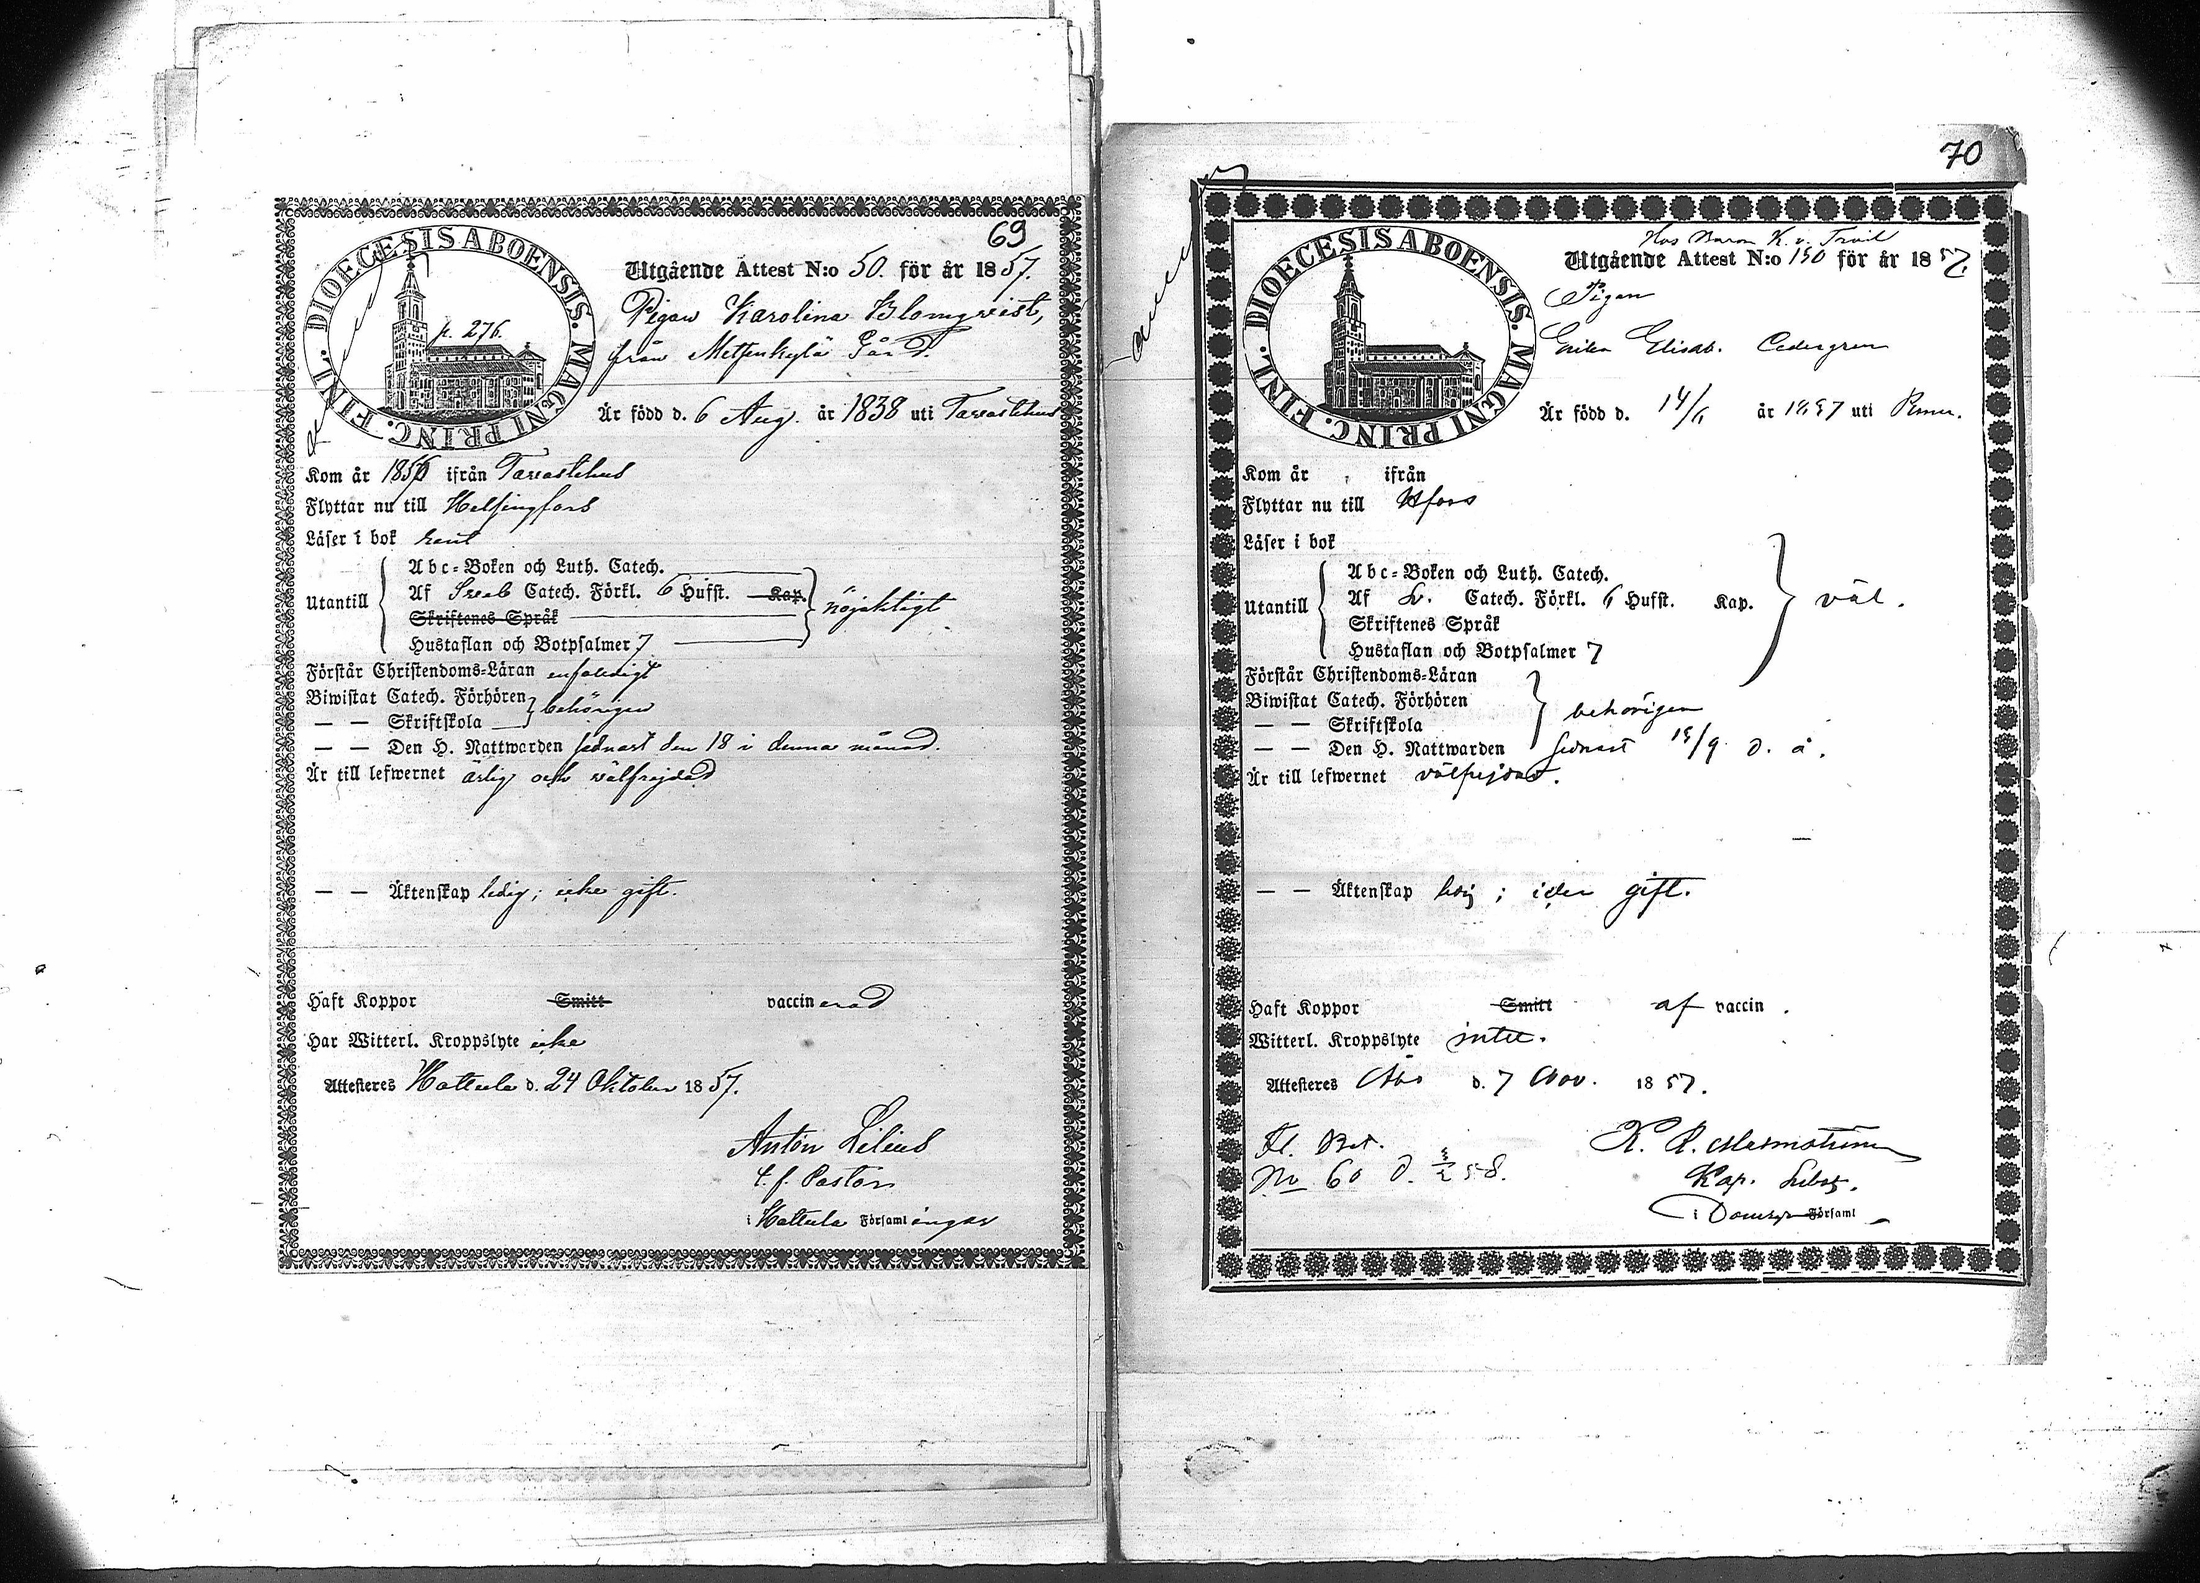 69
DIOECESIS ABOENSIS. MAGNI PRINC. FINL.
p. 276.
Utgående Attest N:o 50. för år 1857.
Pigan Karolina Blomqvist,
från Metsenkylä Gård.
Är född d. 6 Aug. år 1838 uti Tavastehus
Kom år 1856 ifrån Tavastehus
Flyttar nu till Helsingfors
Läser i bok rent
Utantill
Abc-Boken och Luth. Catech.
Af Sveb Catech. Förkl. 6 Hufst. Kap.
Skriftenes Språk
Hustaflan och Botpsalmer 7
nöjaktigt
Förstår Christendoms-Läran enfaldigt
Biwistat Catech. Förhören
— — Skriftskola
behörigen
— — Den H. Nattwarden sednast den 18 i denna månad.
Är till lefwernet ärlig och wälfrejdad
— — Äktenskap ledig; icke gift.
Haft Koppor Smitt vaccinerad
Har Witterl. Kroppslyte icke
Attesteres Hattula d. 24 Oktober 1857.
Anton Lilius
t. f. Pastor
i Hattula Församlingar
70
DIOECESIS ABOENSIS. MAGNI PRINC. FINL.
Hos Baron K. v. Troil
Utgående Attest N:o 150 för år 1857.
Pigan
Erika Elisab. Cedergren
Är född d. 14/ år 1837 uti
Kom år ifrån
Flyttar nu till Hfors
Läser i bok
Utantill
Abc-Boken och Luth. Catech.
Af Sv. Catech. Förkl. 6 Hufst. Kap.
Skriftenes Språk
Hustaflan och Botpsalmer 7
väl.
Förstår Christendoms-Läran
Biwistat Catech. Förhören
— — Skriftskola
behörigen
— — Den H. Nattwarden sednast 15/9 d. å.
Är till lefwernet välfrejdad.
— — Äktenskap ledig; icke gift.
Haft Koppor Smitt af vaccin.
Witterl. Kroppslyte intet.
Attesteres Åbo d. 7 Nov. 1857.
Fl. Bet.
No 60 d. 58.
K. R. Malmström
Kap. Subst.
i Domk. Församl